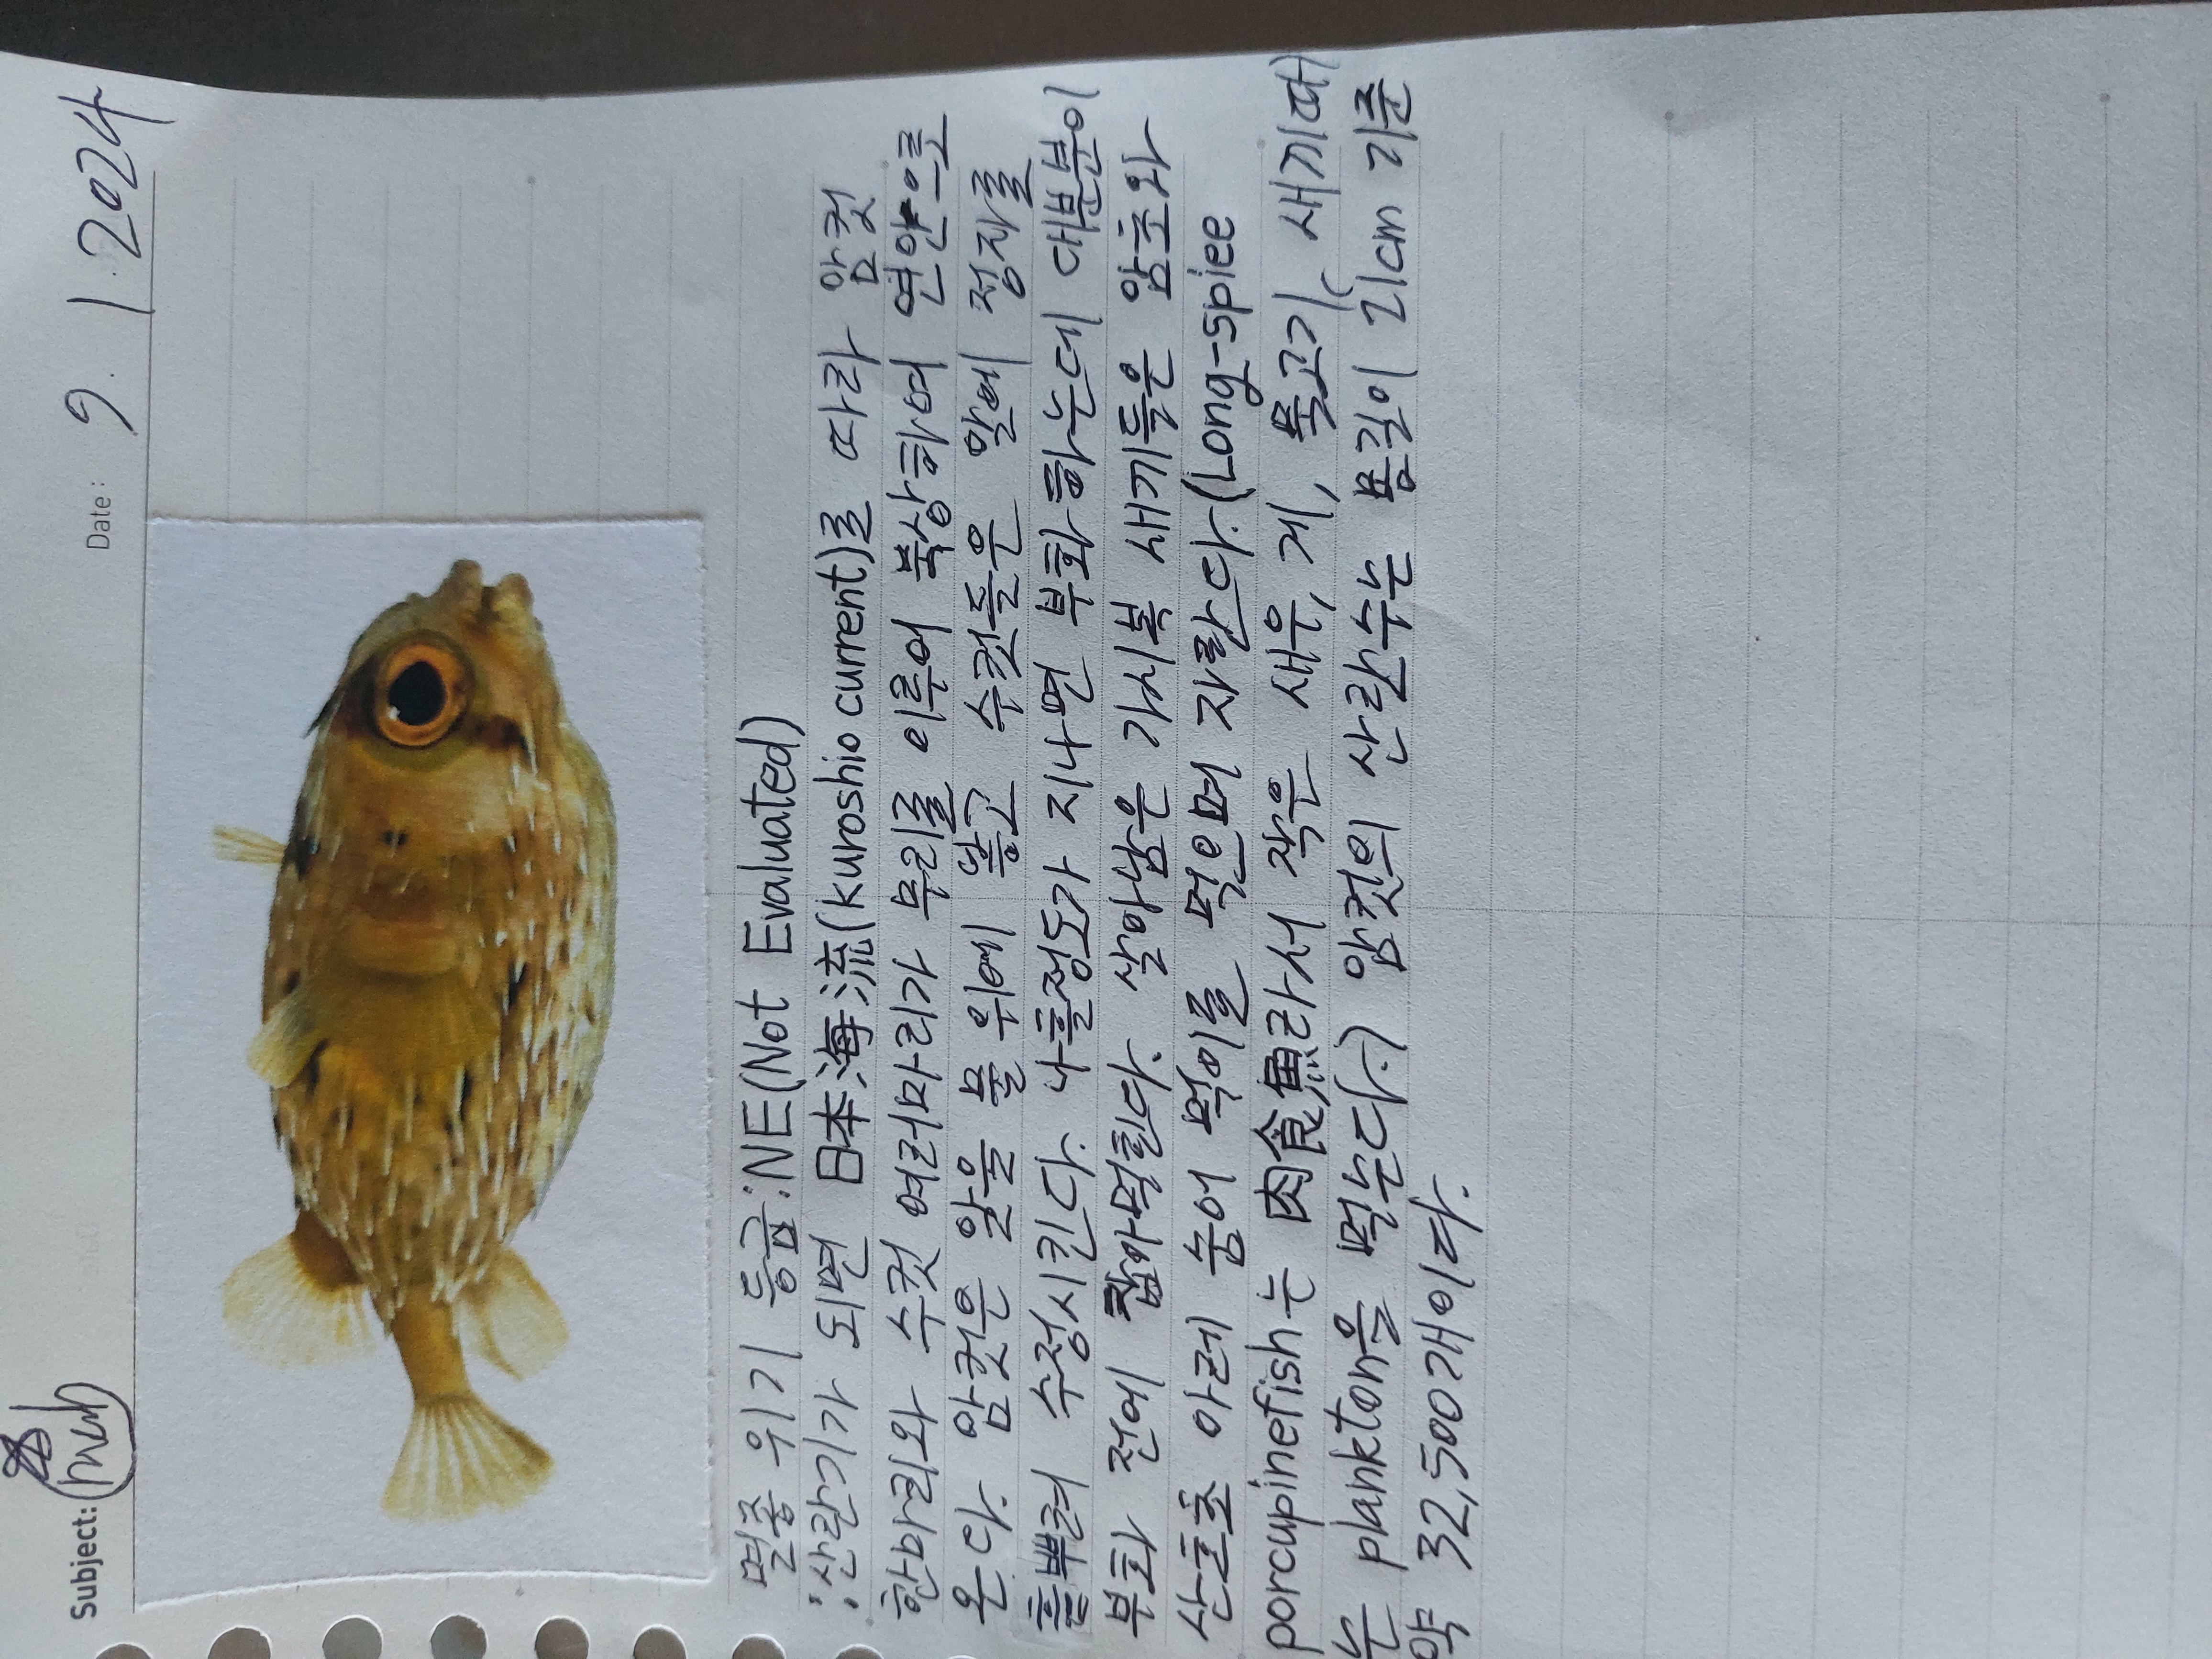 Subject:
Date: 9. 1 2024
멸종 위기 등급:NE(Not Evaluated)
∵산란기가 되면 日本海流(kuroshio current)를 따라 암컷
한마리와 수컷 여러마리가 무리를 이루어 북상하여 연안으로
온다. 암컷은 알을 물 위에 놓고 수컷들은 알에 정자를
흩뿌려 수정시킨다. 나흘정도가 지나면 부화하는데 대부분이
부화 전에 잡아먹힌다. 살아남은 가시복 새끼들은 암초와
산호초 아레 숨어 먹이를 먹으며 자란다.(Long-spiee
porcupinefish는 肉食魚라서 작은 새우, 게, 물고기( 새끼때)
는 plankton을 먹는다.) 암컷의 산란수는 몸길이 21cm 기준
약 32,500개이다.